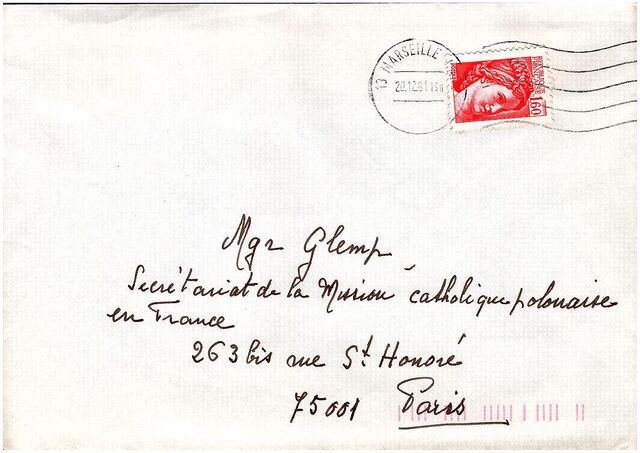 13 MARSEILLE
20.12.81
1,60
Mgr Glemp
Secrétariat de la Mission catholique polonaise
en France
263 bis rue St Honoré
75001 Paris